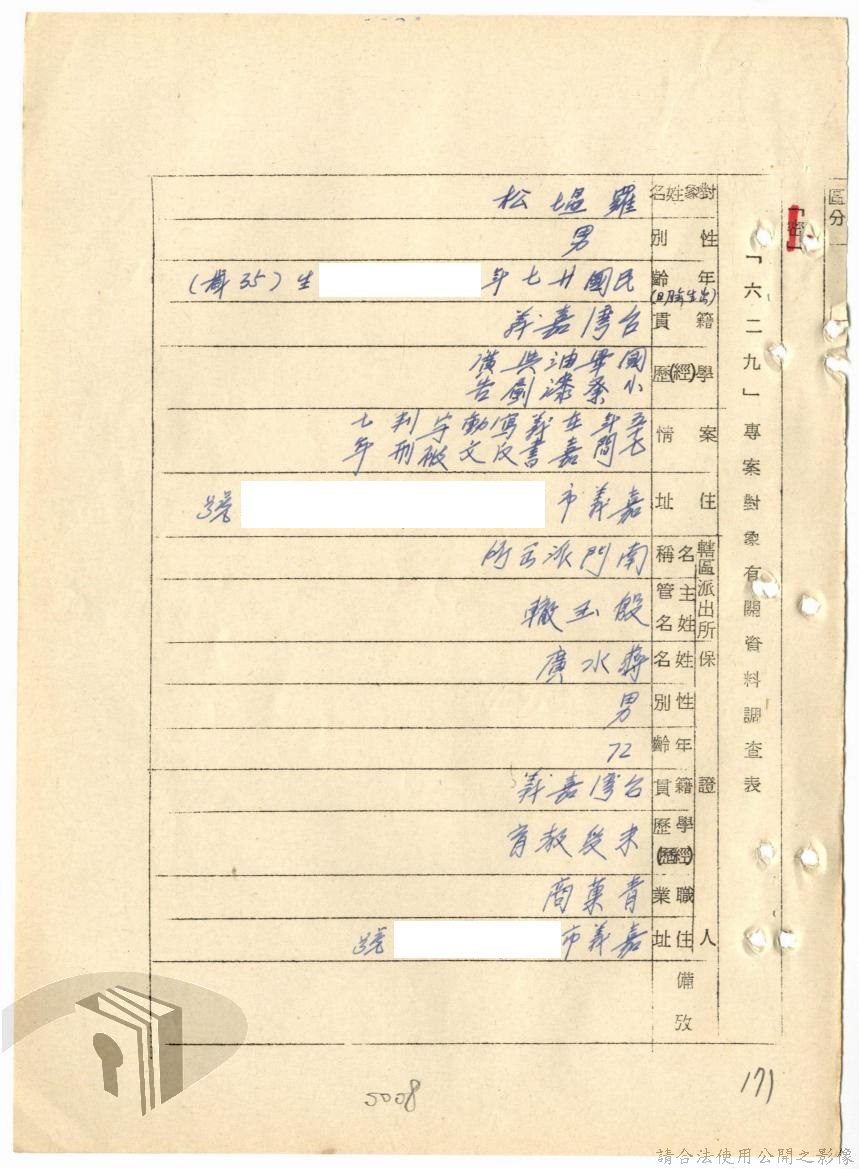 區分
「密」
「六二九」專案對象有關資料調查表
對象姓名
羅塭松
性別
男
年齡(出生年月日)
民國廿七年 生(35歲)
籍貫
台灣嘉義
學(經)歷
國小畢業油漆與廣告
案情
五七年間在嘉義書寫反動文字被判刑七年
住址
嘉義市 號
轄區派出所
名稱
南門派出所
主管姓名
殷玉轍
保證人
姓名
蔣水廣
性別
男
年齡
72
籍貫
台灣嘉義
學歷(經歷)
未受教育
職業
青菓商
住址
嘉義市 號
備攷
171
5008
請合法使用公開之影像